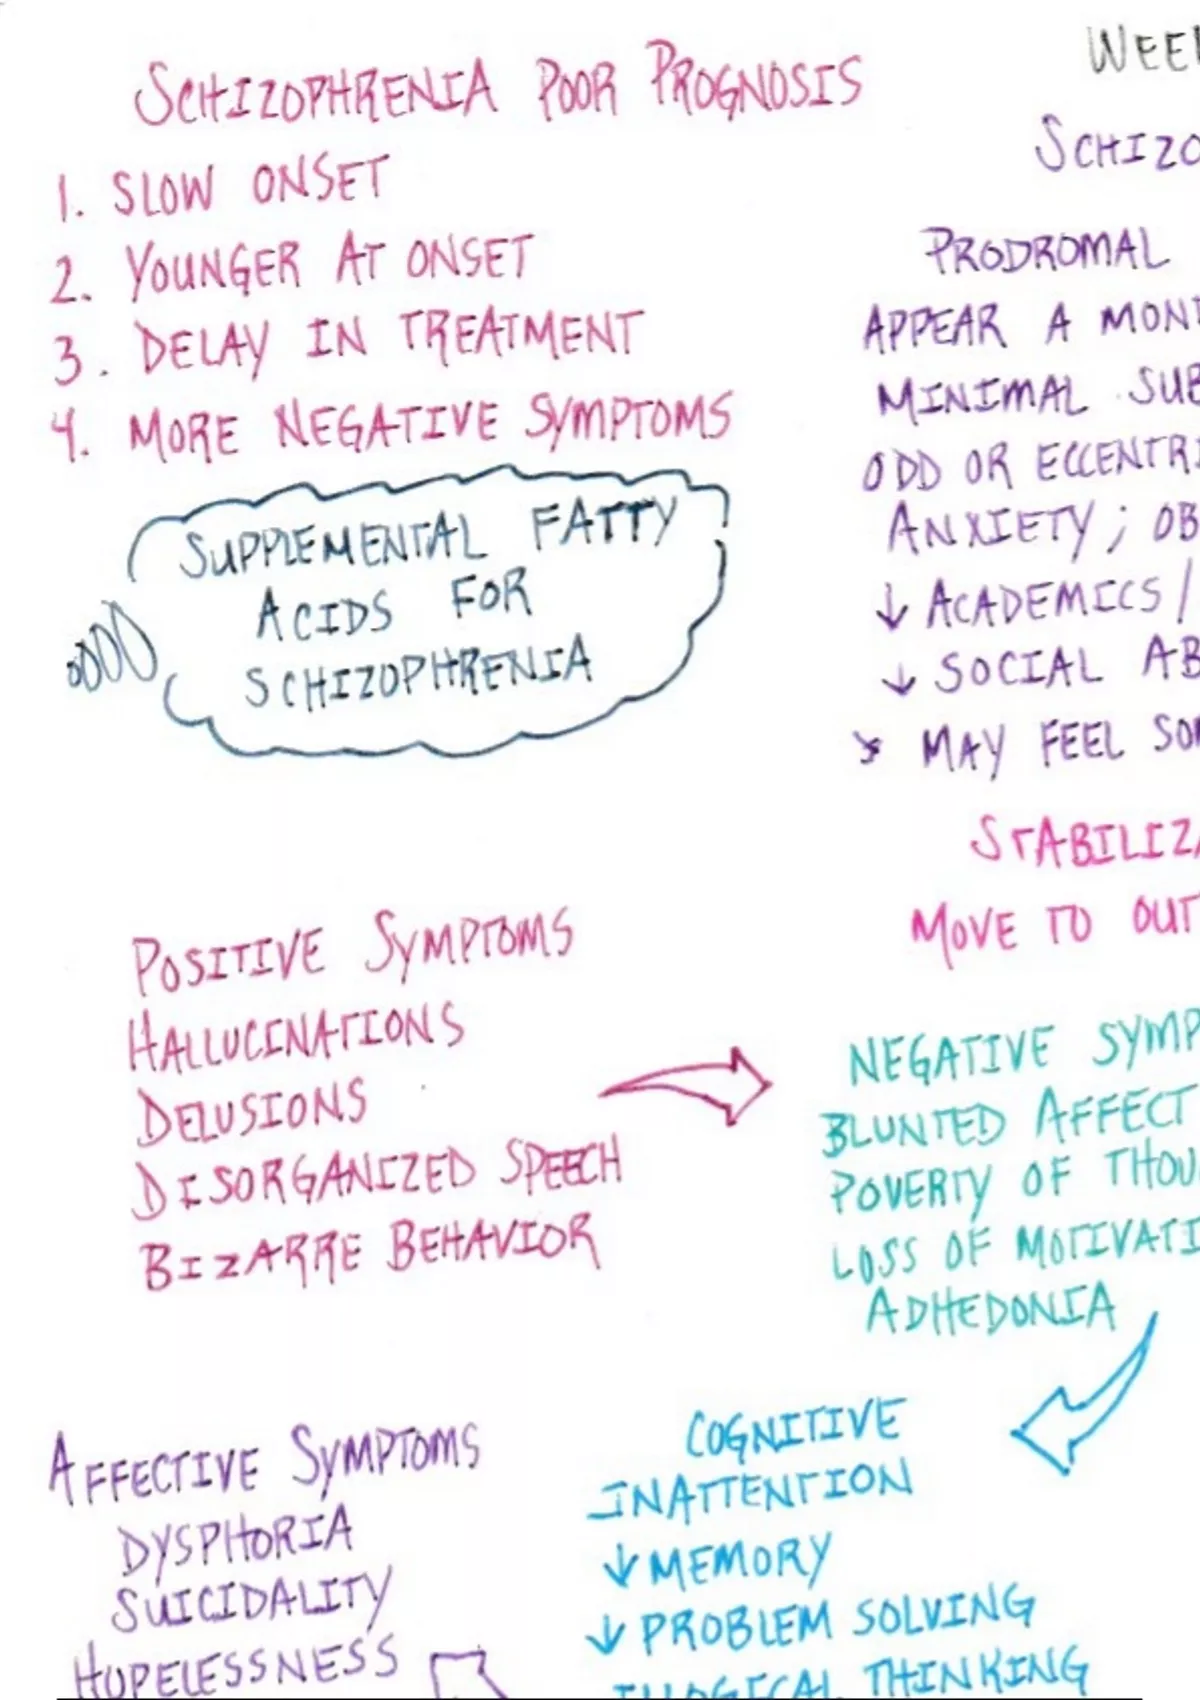 SCHIZOPHRENIA POOR PROGNOSIS
1. SLOW ONSET
2. YOUNGER AT ONSET
3. DELAY IN TREATMENT
4. MORE NEGATIVE SYMPTOMS
SUPPLEMENTAL FATTY
ACIDS FOR
SCHIZOPHRENIA
WEE
SCHIZO
PRODROMAL
APPEAR A MON
MINIMAL SUB
ODD OR ECCENTRI
ANXIETY; OB
↓ ACADEMICS/
↓ SOCIAL AB
MAY FEEL SO
STABILIZ
MOVE TO OUT
POSITIVE SYMPTOMS
HALLUCINATIONS
DELUSIONS
DISORGANIZED SPEECH
BIZARRE BEHAVIOR
NEGATIVE SYMP
BLUNTED AFFECT
POVERTY OF THOU
LOSS OF MOTIVATI
ADHEDONIA
COGNITIVE
INATTENTION
↓ MEMORY
↓ PROBLEM SOLVING
ILLOGICAL THINKING
AFFECTIVE SYMPTOMS
DYSPHORIA
SUICIDALITY
HOPELESSNESS